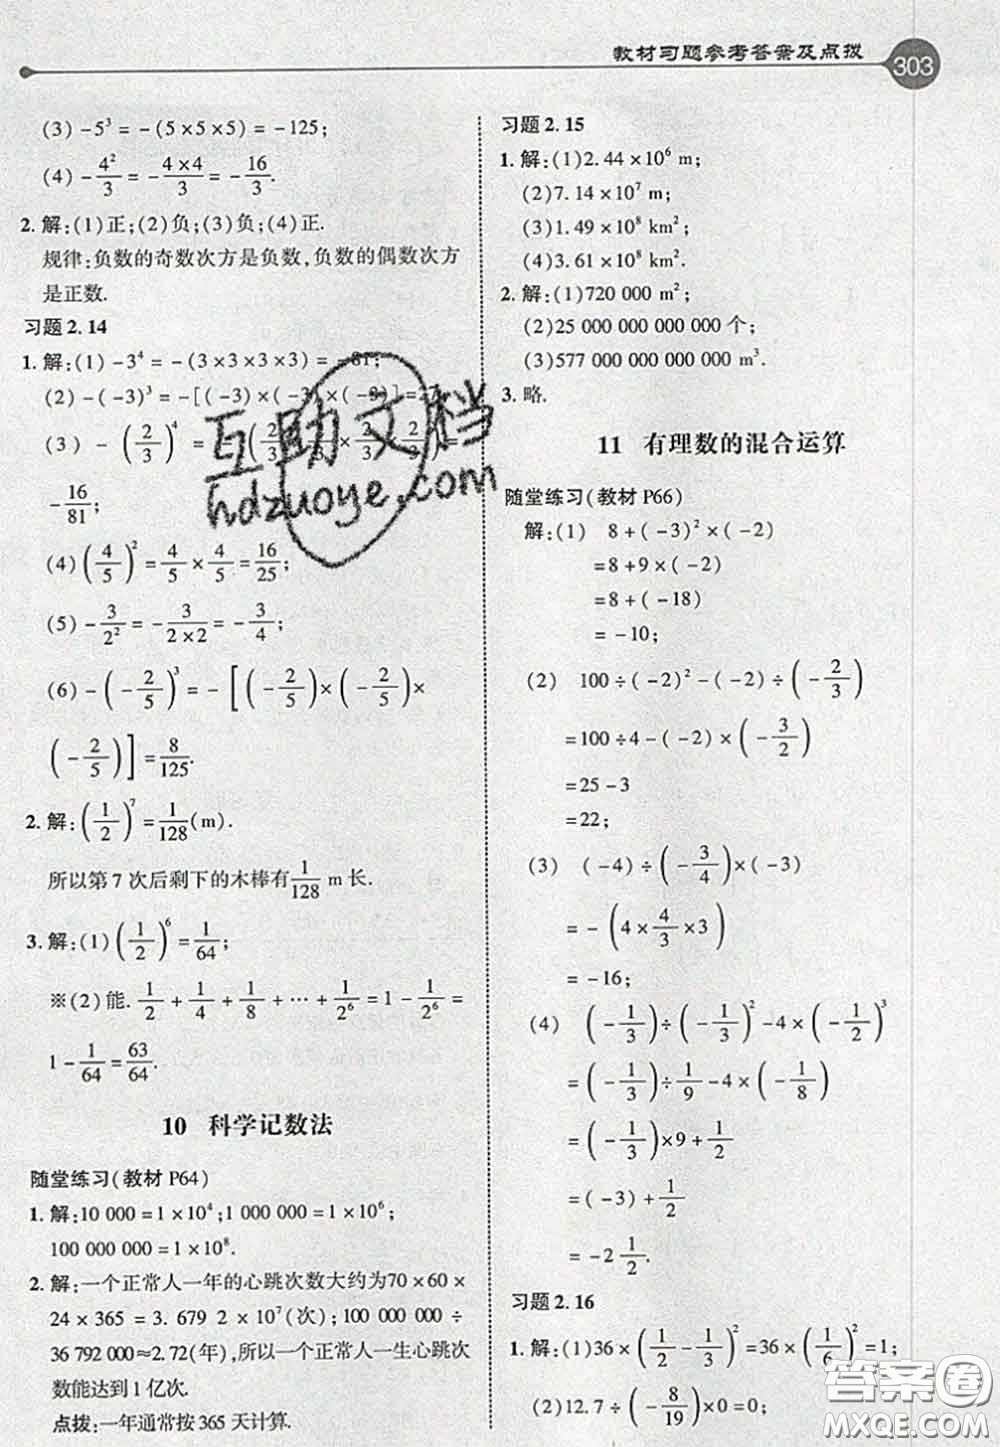 教材习题参考答案及点拨 303
(3) -5³ = -(5×5×5) = -125;
(4) -4²/3 = -(4×4)/3 = -16/3.
2. 解:(1)正;(2)负;(3)负;(4)正.
规律:负数的奇数次方是负数,负数的偶数次方
是正数.
习题2.14
1. 解:(1) -3⁴ = -(3×3×3×3) = -81;
(2) -(-3)³ = -[(-3)×(-3)×(-3)] = 27
(3) -(2/3)⁴ = -(2/3 × 2/3 × 2/3 × 2/3) =
-16/81;
(4) (4/5)² = 4/5 × 4/5 = 16/25;
(5) -3/2² = -3/(2×2) = -3/4;
(6) -(-2/5)³ = -[(-2/5)×(-2/5)×
(-2/5)] = 8/125.
2. 解:(1/2)⁷ = 1/128(m).
所以第7次后剩下的木棒有1/128 m长.
3. 解:(1)(1/2)⁶ = 1/64;
※(2)能. 1/2 + 1/4 + 1/8 + … + 1/2⁶ = 1 - 1/2⁶ =
1 - 1/64 = 63/64.
10 科学记数法
随堂练习(教材P64)
1. 解:10 000 = 1×10⁴;1 000 000 = 1×10⁶;
100 000 000 = 1×10⁸.
2. 解:一个正常人一年的心跳次数大约为70×60×
24×365 = 3.679 2×10⁷(次),100 000 000÷
36 792 000≈2.72(年),所以一个正常人一生心跳次
数能达到1亿次.
点拨:一年通常按365天计算.
习题2.15
1. 解:(1)2.44×10⁶ m;
(2)7.14×10⁷ m;
(3)1.49×10⁸ km²;
(4)3.61×10⁸ km².
2. 解:(1)720 000 m²;
(2)25 000 000 000 000个;
(3)577 000 000 000 000 m³.
3. 略.
11 有理数的混合运算
随堂练习(教材P66)
解:(1) 8+(-3)²×(-2)
=8+9×(-2)
=8+(-18)
=-10;
(2) 100÷(-2)²-(-2)÷(-2/3)
=100÷4-(-2)×(-3/2)
=25-3
=22;
(3) (-4)÷(-3/4)×(-3)
=-(4×4/3×3)
=-16;
(4) (-1/3)÷(-1/3)²-4×(-1/2)³
=(-1/3)÷1/9-4×(-1/8)
=(-1/3)×9+1/2
=(-3)+1/2
=-2 1/2.
习题2.16
1. 解:(1)36×(1/2-1/3)²=36×(1/6)²=1;
(2)12.7÷(-8/19)×0=0;
互助文档
hdzuoye.com
答案圈
MXQE.COM